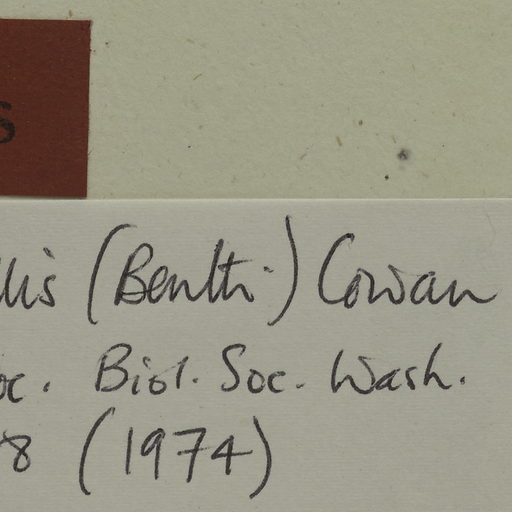 s
llis (Benth.) Cowan
oc. Biol. Soc. Wash.
8 (1974)